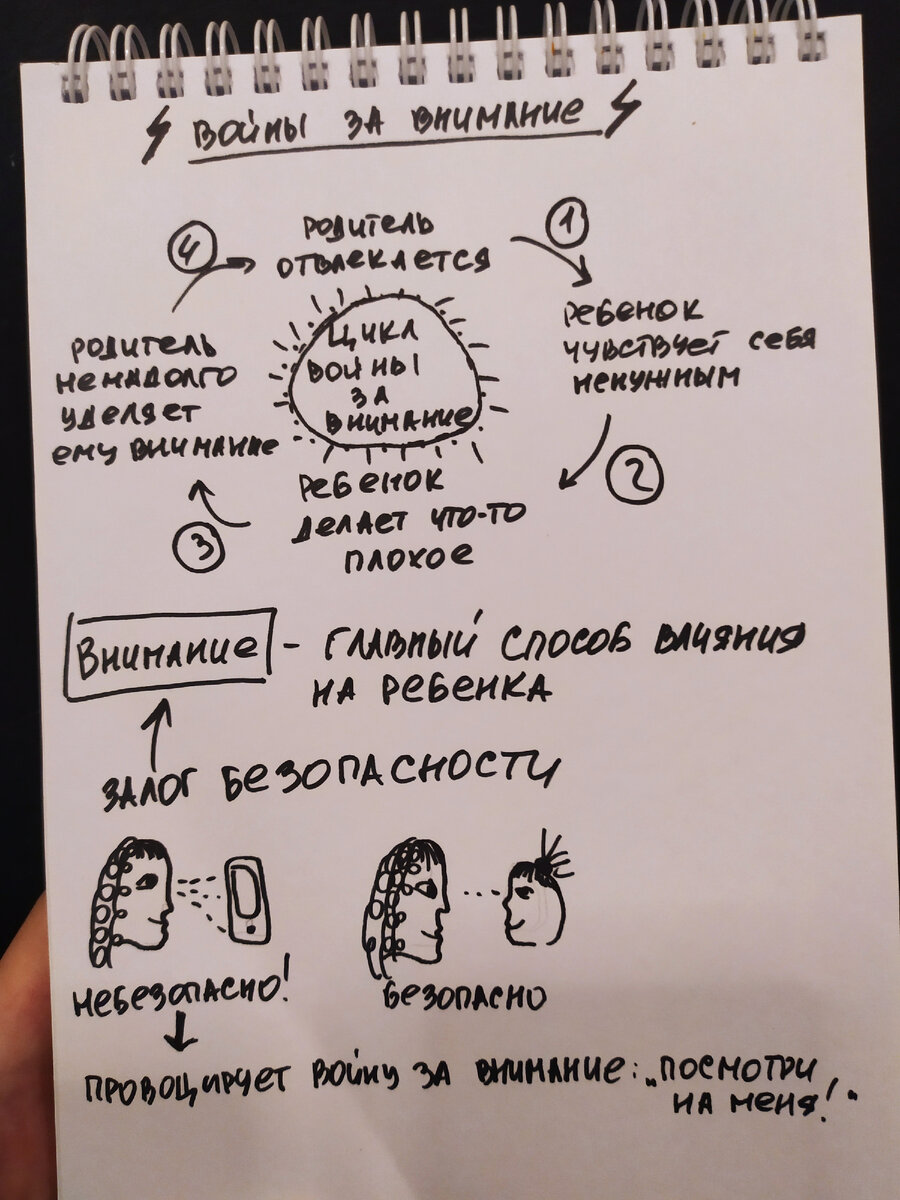 ВОЙНЫ ЗА ВНИМАНИЕ
РОДИТЕЛЬ
ОТВЛЕКАЕТСЯ
1
РЕБЕНОК
ЧУВСТВУЕТ СЕБЯ
НЕНУЖНЫМ
2
РЕБЕНОК
ДЕЛАЕТ ЧТО-ТО
ПЛОХОЕ
3
РОДИТЕЛЬ
НЕНАДОЛГО
УДЕЛЯЕТ
ЕМУ ВНИМАНИЕ
4
ЦИКЛ
ВОЙНЫ
ЗА
ВНИМАНИЕ
ВНИМАНИЕ - ГЛАВНЫЙ СПОСОБ ВЛИЯНИЯ
НА РЕБЕНКА
ЗАЛОГ БЕЗОПАСНОСТИ
НЕБЕЗОПАСНО!
БЕЗОПАСНО
ПРОВОЦИРУЕТ ВОЙНУ ЗА ВНИМАНИЕ: „ПОСМОТРИ
НА МЕНЯ!"